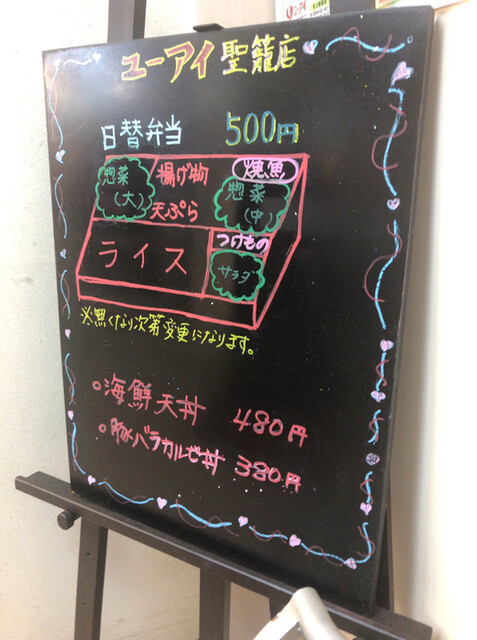 ユーアイ聖籠店
日替弁当 500円
惣菜(大)
揚げ物
天ぷら
焼魚
惣菜(中)
ライス
つけもの
サラダ
※無くなり次第変更になります。
○海鮮天丼 480円
○豚バラカルビ丼 380円